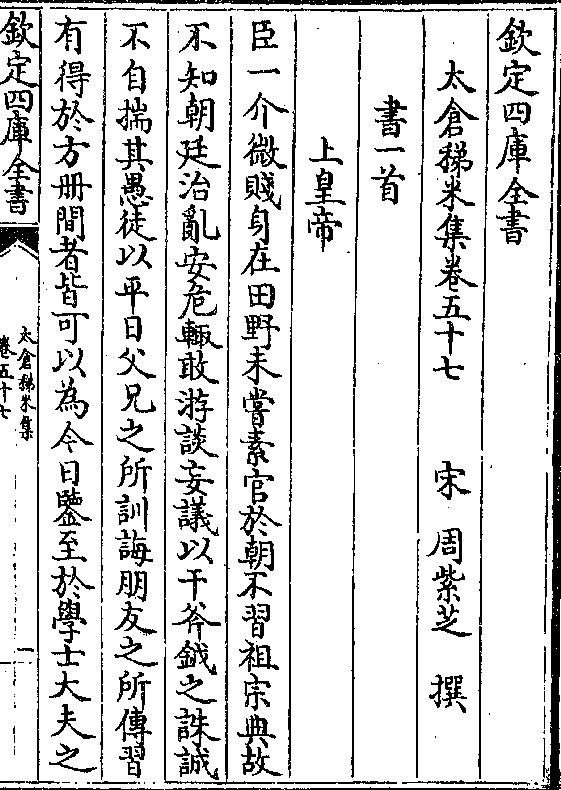 欽定四庫全書
太倉稊米集卷五十七 宋 周紫芝 撰
書一首
上皇帝
臣一介微賤身在田野未嘗素官於朝不習祖宗典故
不知朝廷治亂安危輙敢游談妄議以干斧鉞之誅誠
不自揣其愚徒以平日父兄之所訓誨朋友之所傳習
有得於方冊間者皆可以為今日鑒至於學士大夫之
欽定四庫全書
太倉稊米集
卷五十七
一